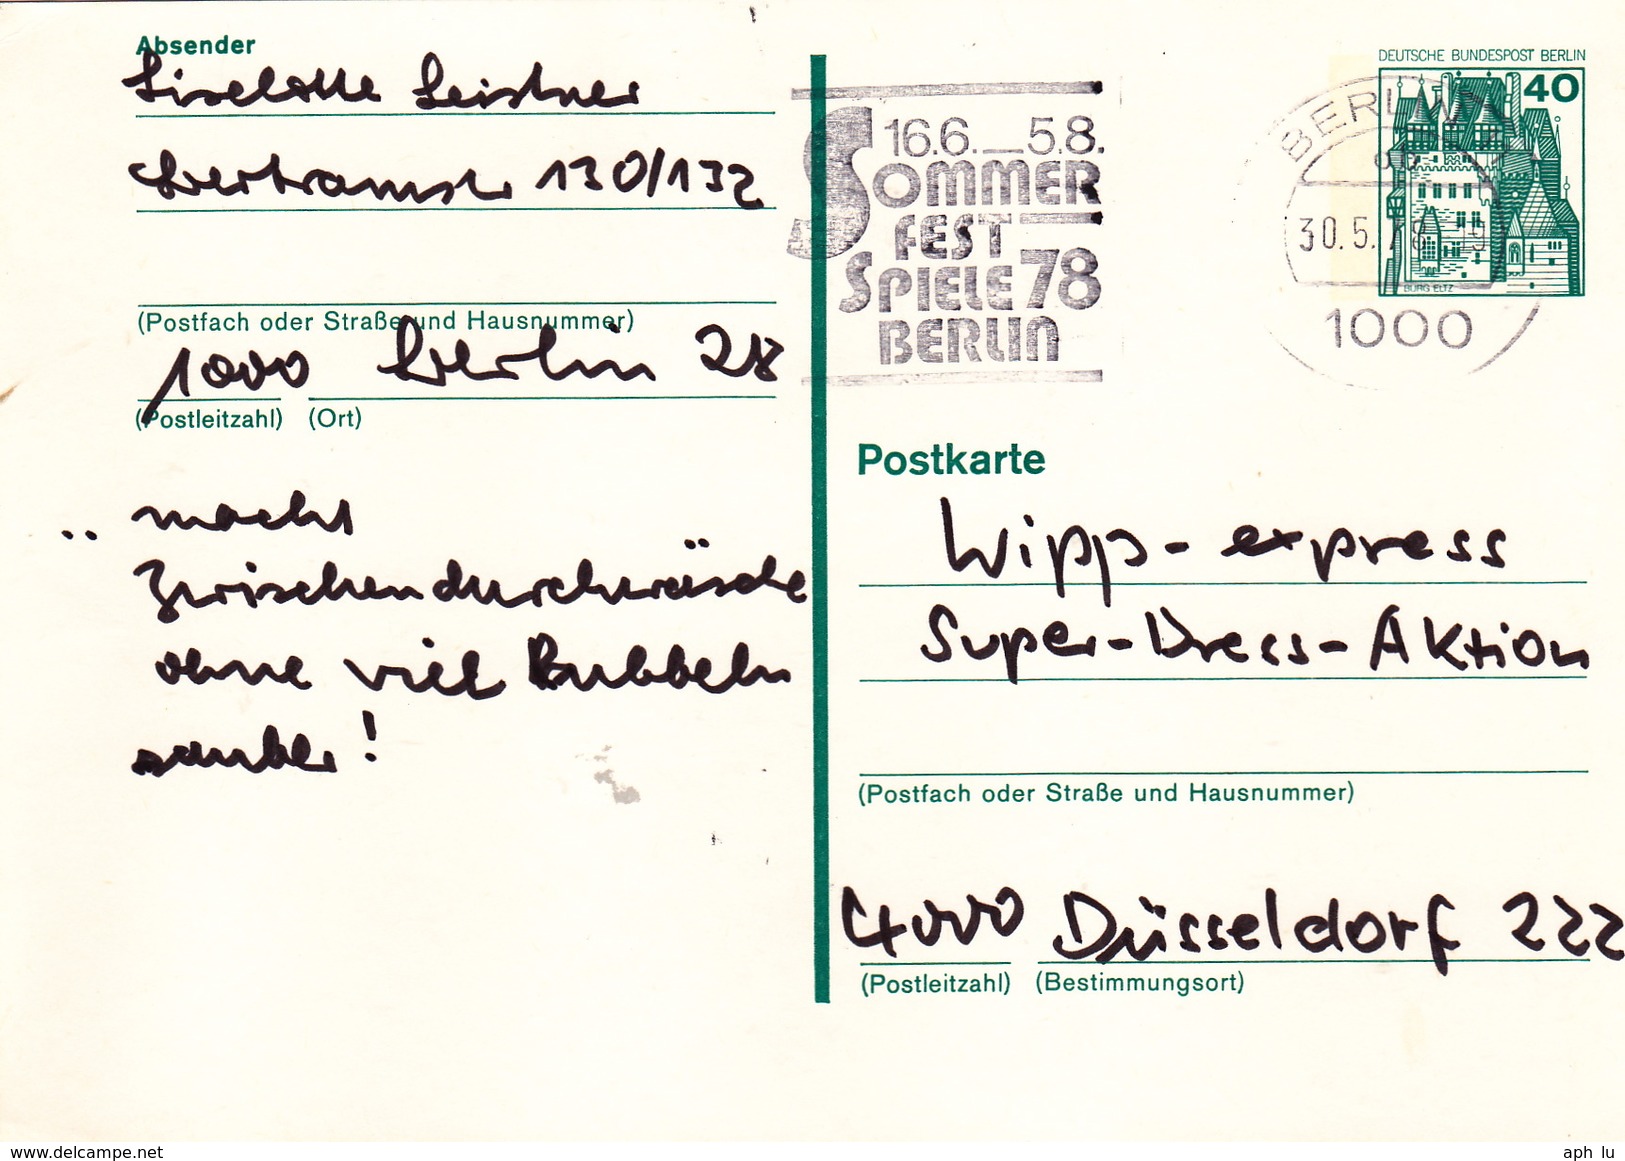 Absender
Liselotte Leistner
Bertramstr 130/132
(Postfach oder Straße und Hausnummer)
1000 Berlin 28
(Postleitzahl) (Ort)
.. macht
Zwischendurchwäsche
ohne viel Rubbeln
sauber!
16.6.—5.8.
SOMMER
FEST
SPIELE 78
BERLIN
DEUTSCHE BUNDESPOST BERLIN
40
BURG ELTZ
BERLIN
30.5.78
1000
Postkarte
Wipp-express
Super-Dress-Aktion
(Postfach oder Straße und Hausnummer)
4000 Düsseldorf 222
(Postleitzahl) (Bestimmungsort)
www.delcampe.net
aph lu